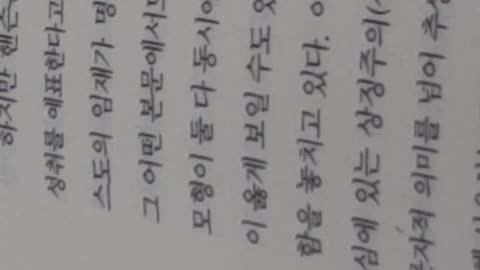 하지만 핸슨
성취를 예표한다고
스도의 임재가 명
그 어떤 본문에서
모형이 둘 다 동시에
이 옳게 보일 수도
함을 놓치고 있다.
심에 있는 상징주의(
의미를 넘어